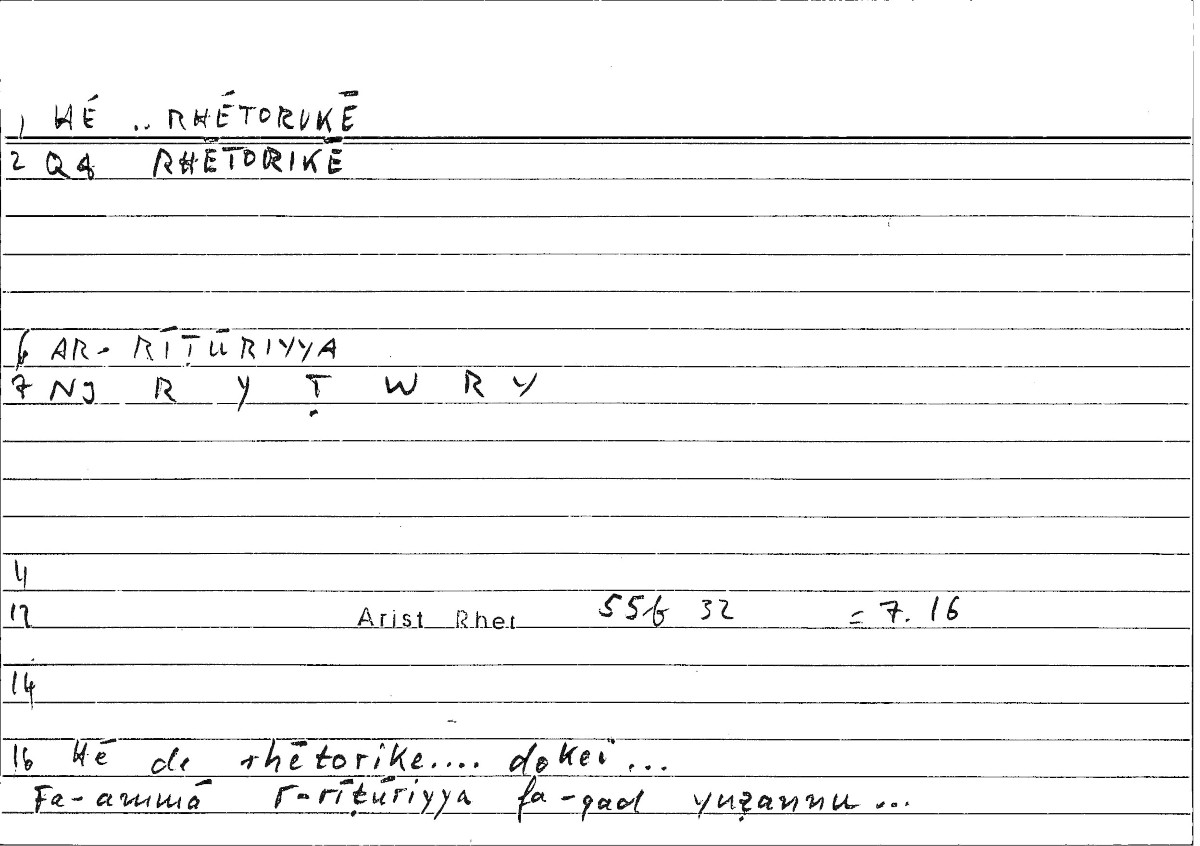 1 HĒ .. RHĒTORIKĒ
2 Q4 RHĒTORIKĒ
6 AR- RĪṬŪRIYYA
7 NJ R Y Ṭ W R Y
11
12 Arist Rhet 55b 32 = 7. 16
14
16 Hē de rhētorike.... dokeī ...
Fa-ammā r-rīṭūriyya fa-qad yuẓannu ...